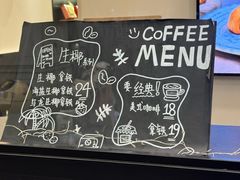 COFFEE
MENU
生椰系列
生椰拿铁
海盐生椰拿铁 24
生椰拿铁
经典!
美式咖啡 18
拿铁 19